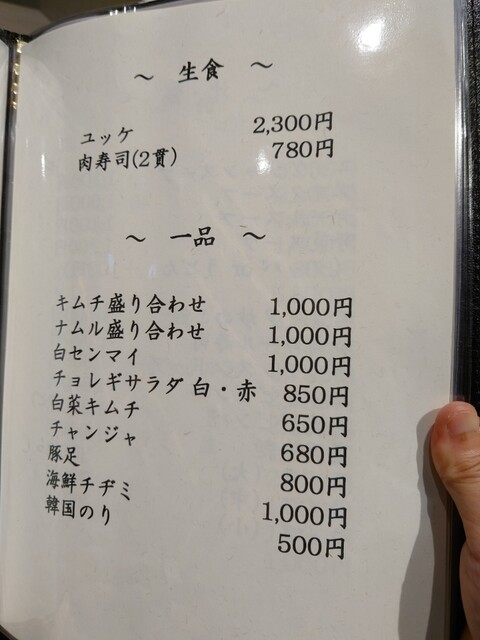 ～ 生食 ～
ユッケ 2,300円
肉寿司(2貫) 780円
～ 一品 ～
キムチ盛り合わせ 1,000円
ナムル盛り合わせ 1,000円
白センマイ 1,000円
チョレギサラダ 白・赤 850円
白菜キムチ 650円
チャンジャ 680円
豚足 800円
海鮮チヂミ 1,000円
韓国のり 500円